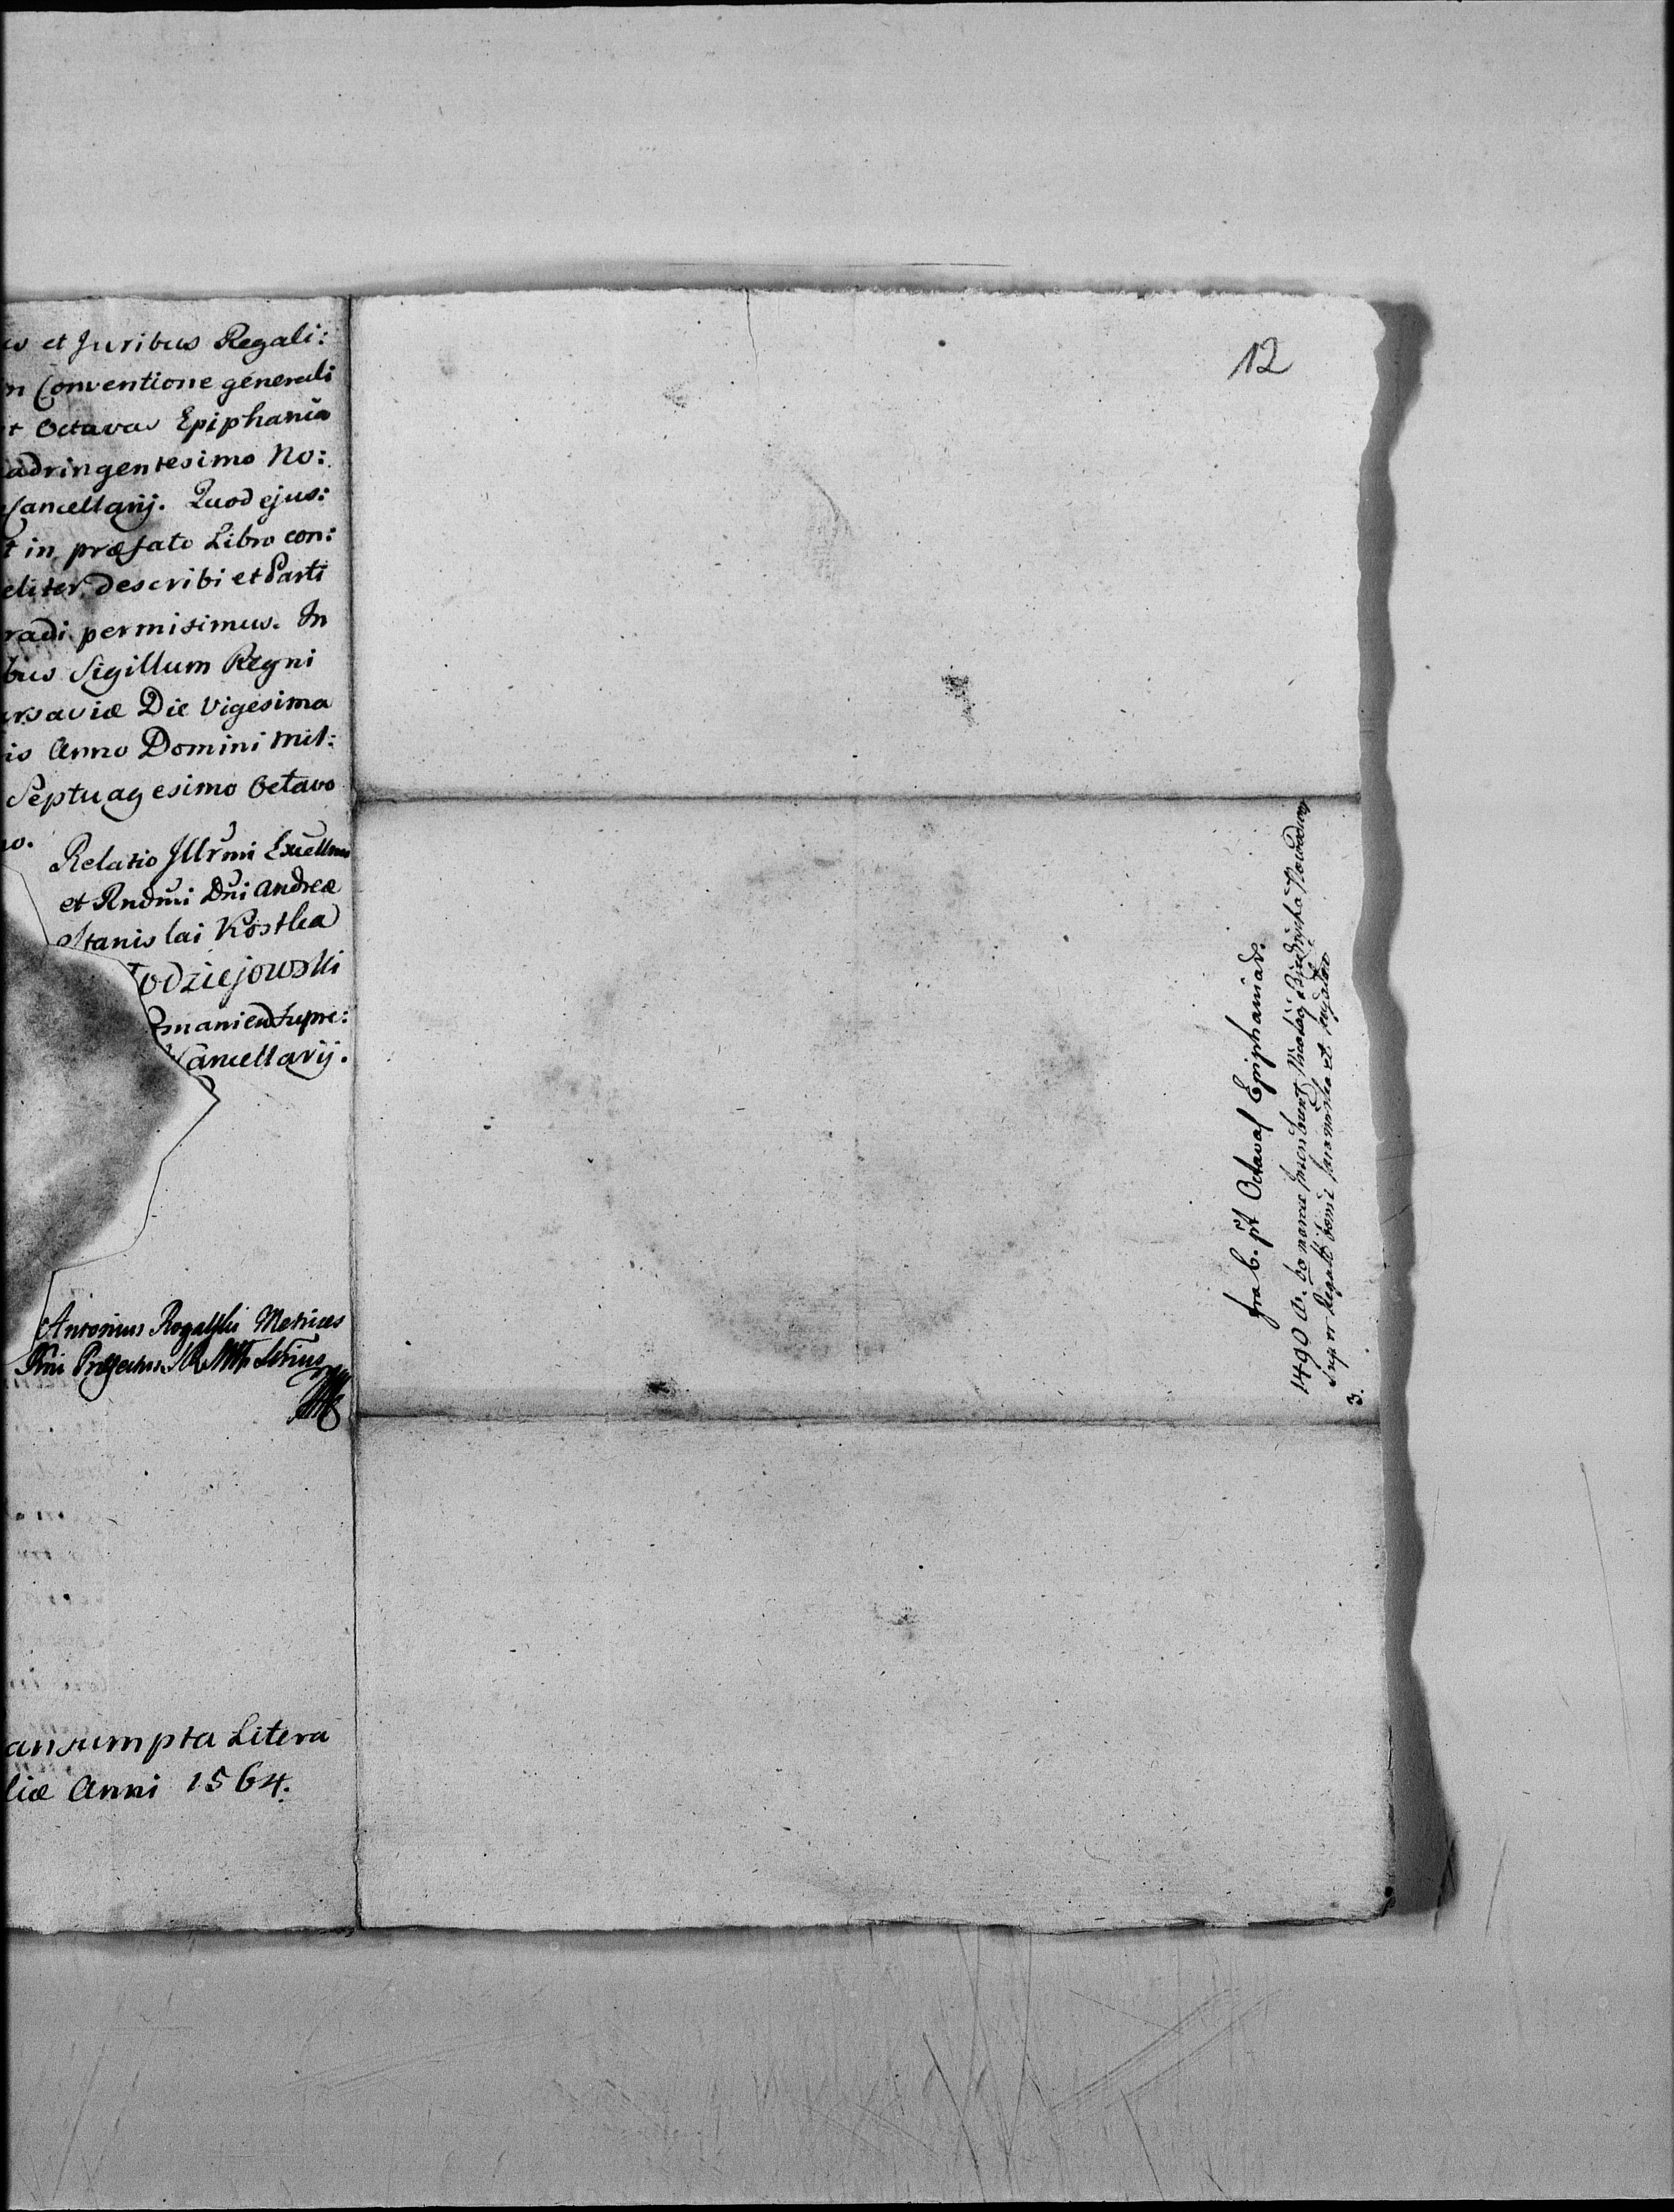 et Juribus Regali:
n Conventione generali
t Octavas Epiphaniæ
adringentesimo No:
Cancellarij. Quod ejus:
t in præfato Libro con:
eliter describi et Parti
radi permisimus. In
bus Sigillum Regni
arsaviæ Die vigesima
is Anno Domini Mil:
Septuagesimo Octavo
o.
Relatio Illrmi Excellmi
et Rndmi Dni Andreæ
Stanislai Kostka
odziejowski
Supre:
Cancellarij.
Antonius Rogalski Metrices
ansumpta Litera
liæ Anni 1564.
12
fra 6. pt Octavas Epiphaniar.
1490 a. 60 marcæ
super Regali bonis
3.